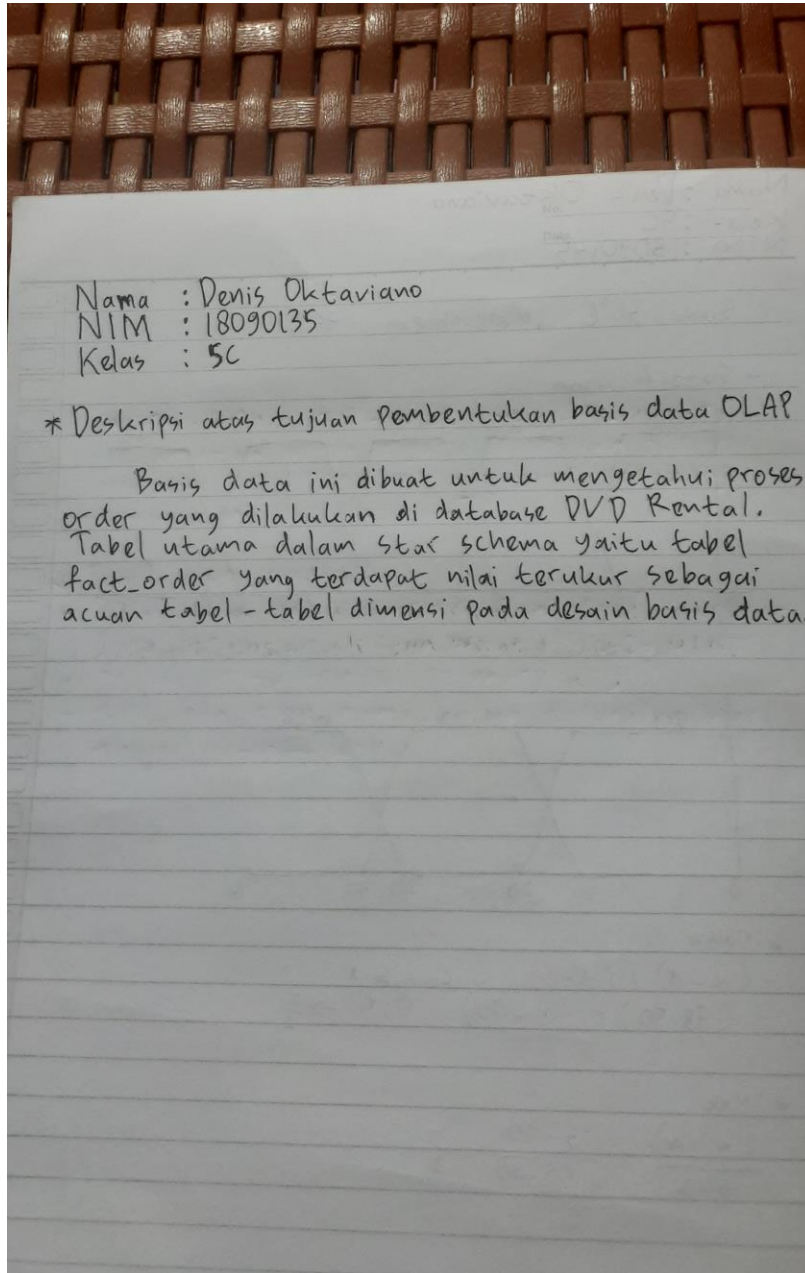 Nama : Denis Oktaviano
NIM : 18090135
Kelas : 5C
* Deskripsi atas tujuan pembentukan basis data OLAP
Basis data ini dibuat untuk mengetahui proses
order yang dilakukan di database DVD Rental.
Tabel utama dalam star schema yaitu tabel
fact_order yang terdapat nilai terukur sebagai
acuan tabel-tabel dimensi pada desain basis data.